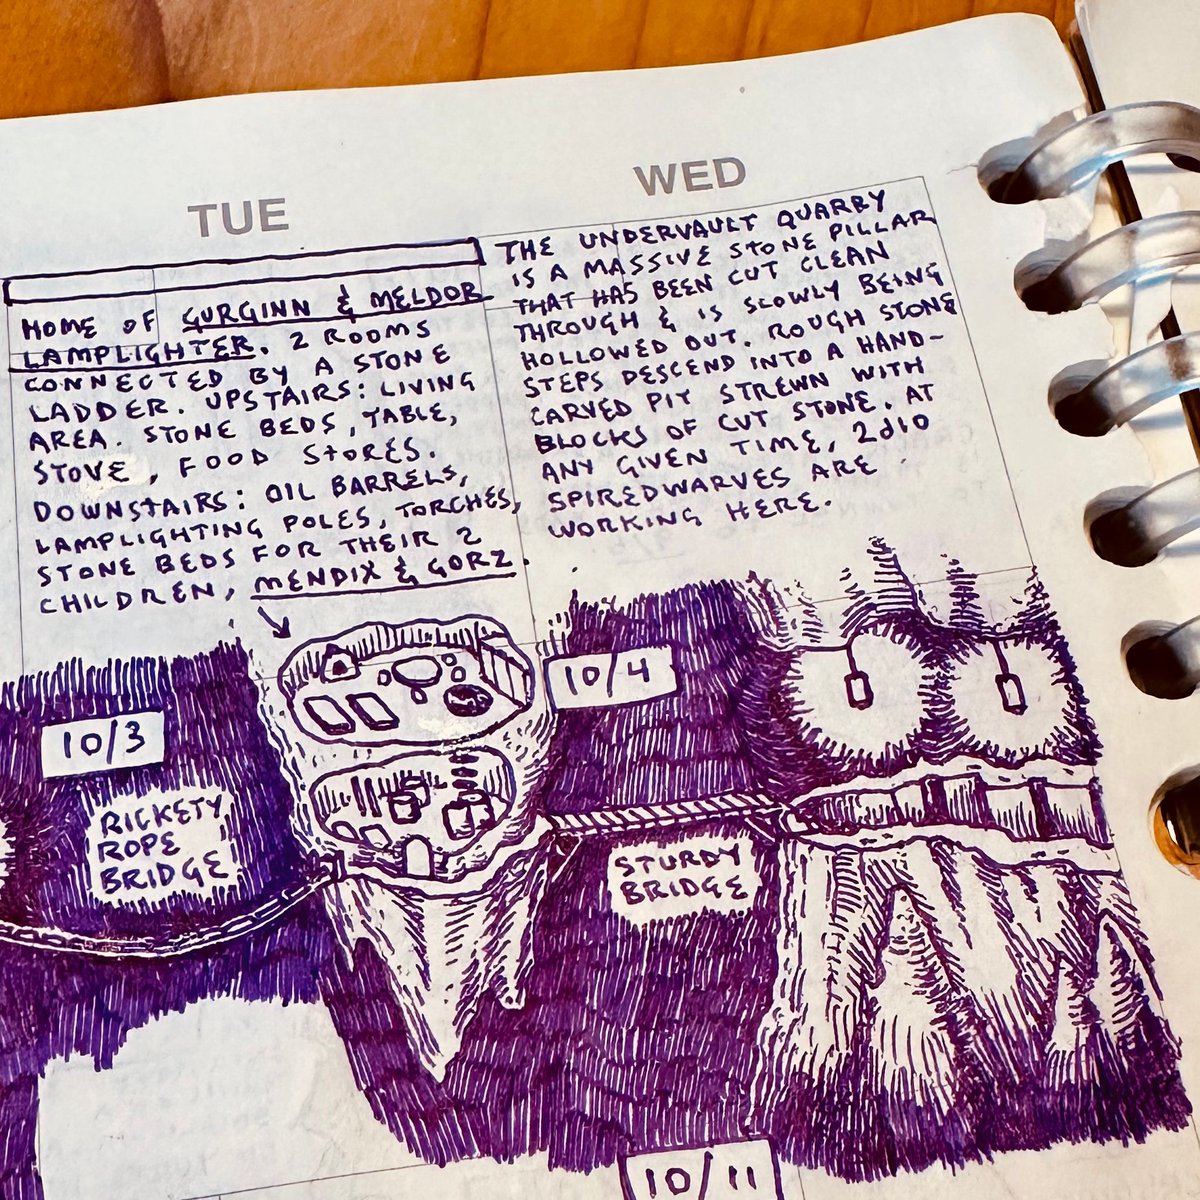 TUE
HOME OF GURGINN & MELDOR
LAMPLIGHTER. 2 ROOMS
CONNECTED BY A STONE
LADDER. UPSTAIRS: LIVING
AREA. STONE BEDS, TABLE,
STOVE, FOOD STORES.
DOWNSTAIRS: OIL BARRELS,
LAMPLIGHTING POLES, TORCHES,
STONE BEDS FOR THEIR 2
CHILDREN, MENDIX & GORZ.
WED
THE UNDERVAULT QUARRY
IS A MASSIVE STONE PILLAR
THAT HAS BEEN CUT CLEAN
THROUGH & IS SLOWLY BEING
HOLLOWED OUT. ROUGH STONE
STEPS DESCEND INTO A HAND-
CARVED PIT STREWN WITH
BLOCKS OF CUT STONE. AT
ANY GIVEN TIME, 2d10
SPIREDWARVES ARE
WORKING HERE.
10/3
RICKETY
ROPE
BRIDGE
10/4
STURDY
BRIDGE
10/11